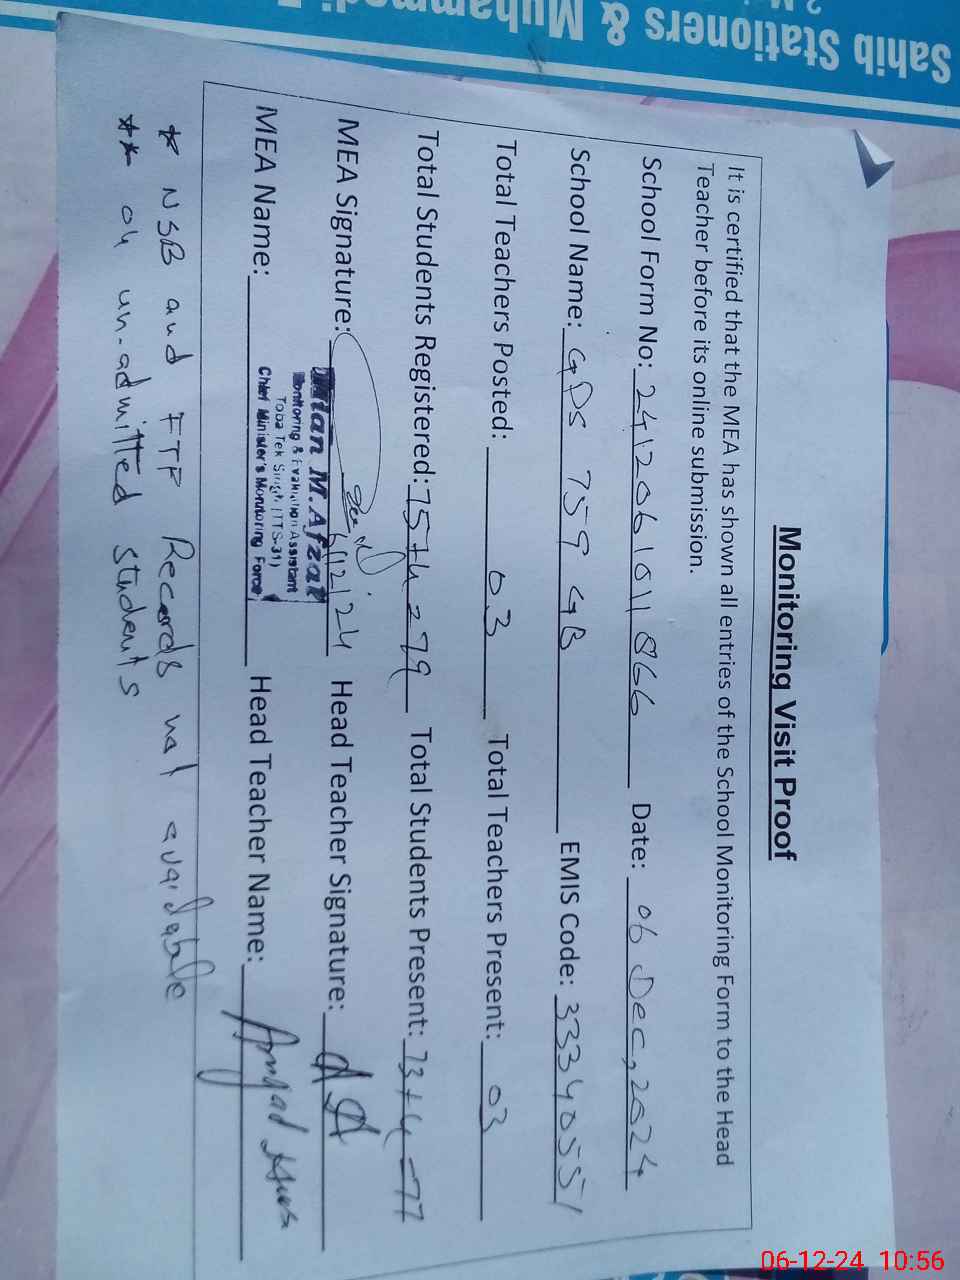 Sahib Stationers & Muhammadi
Monitoring Visit Proof
It is certified that the MEA has shown all entries of the School Monitoring Form to the Head
Teacher before its online submission.
School Form No: 2412061011866 Date: 06 Dec, 2024
School Name: GPS 759 GB EMIS Code: 33340551
Total Teachers Posted: 03 Total Teachers Present: 03
Total Students Registered: 75+4=79 Total Students Present: 73+4=77
MEA Signature: 6/12/24 Head Teacher Signature:
M.Afzal
Monitoring & Evaluation Assistant
Toba Tek Singh (TTS-31)
Chief Minister's Monitoring Force
MEA Name: Head Teacher Name: Amjad
* NSB and FTF Records not available
** 04 un-admitted students
06-12-24 10:56